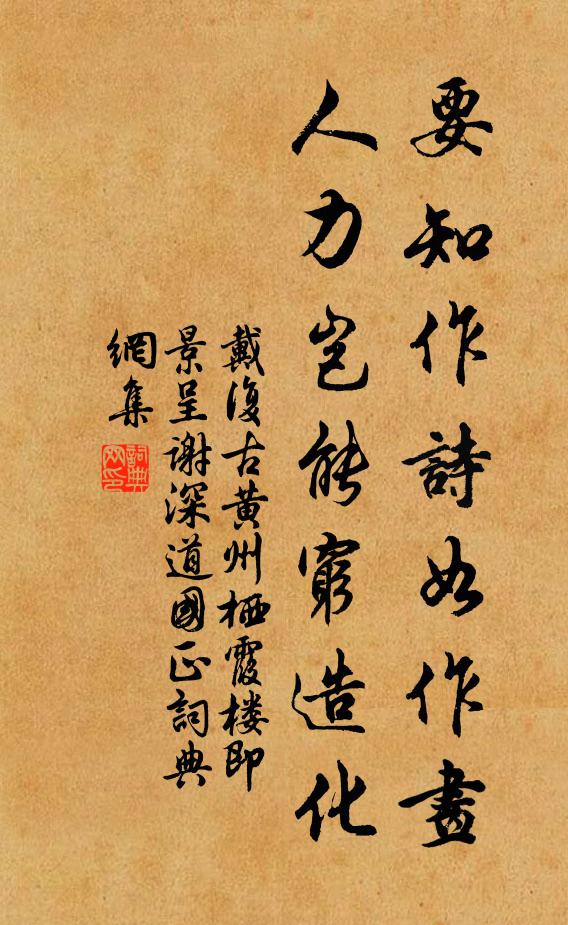 要知作詩如作畫
人力豈能窮造化
戴復古黄州栖霞楼即
景呈谢深道國正詞典
網集
詞典
网印